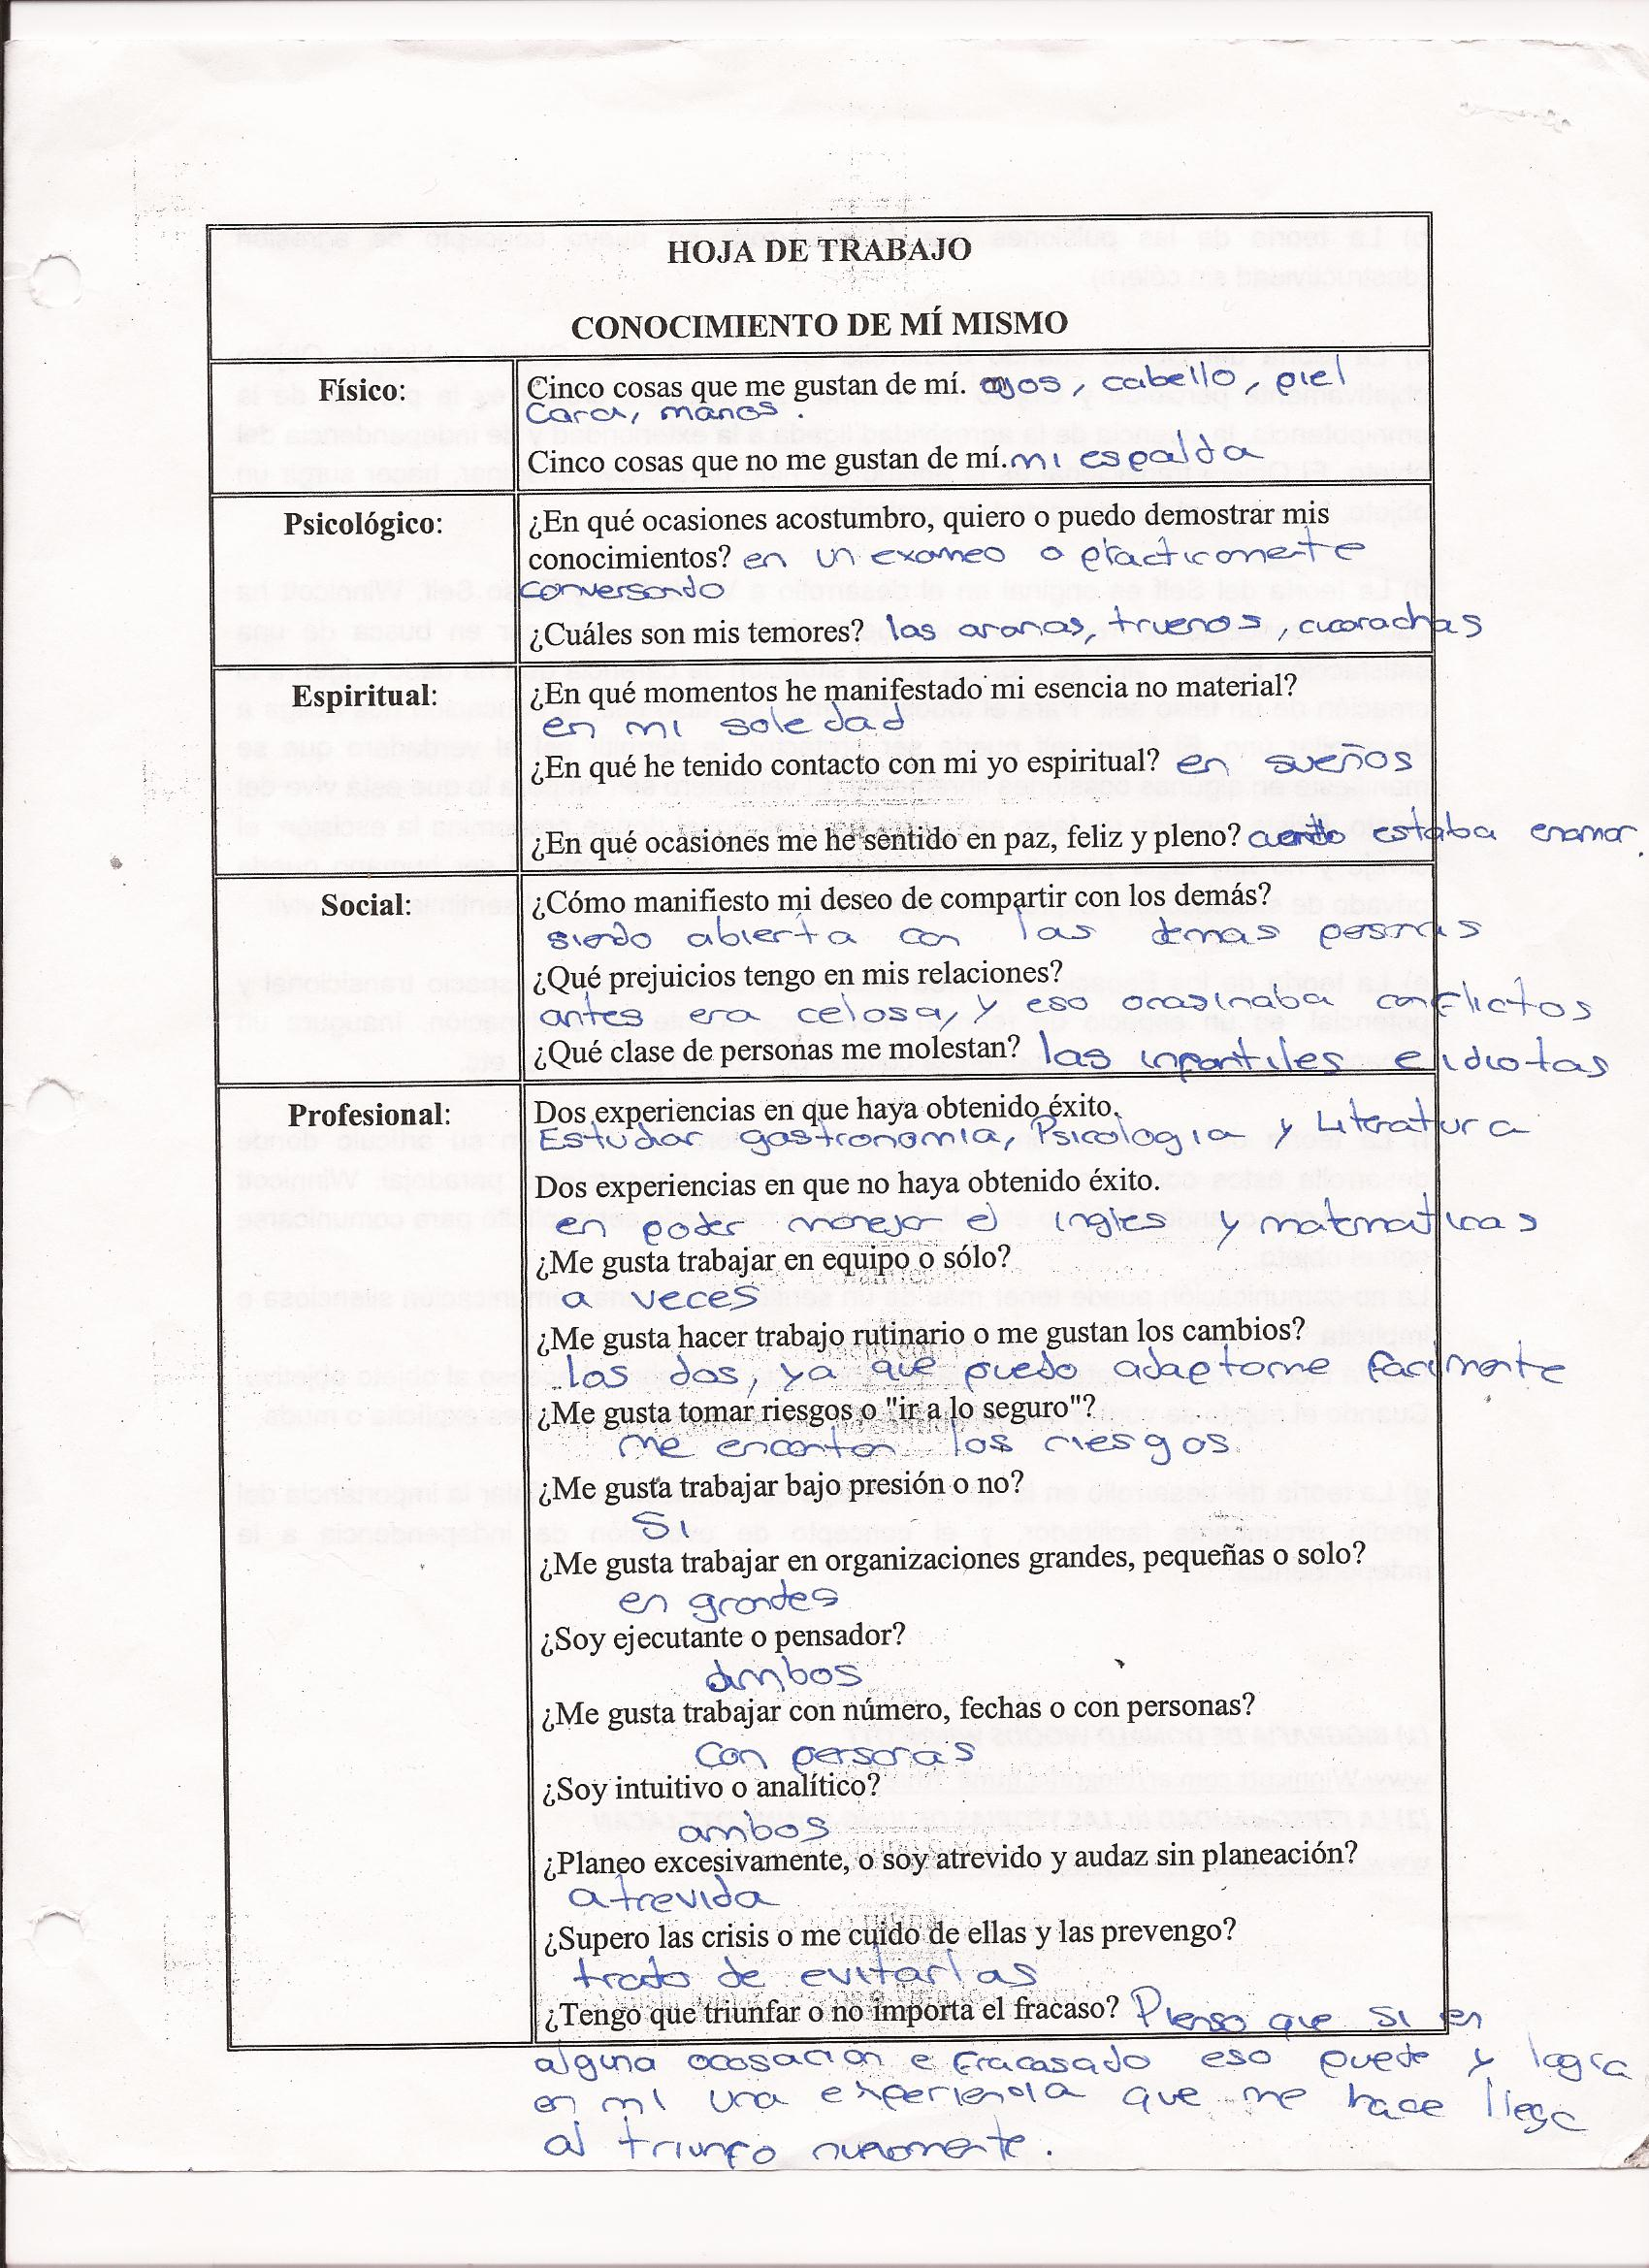 HOJA DE TRABAJO
CONOCIMIENTO DE MÍ MISMO
Físico:
Cinco cosas que me gustan de mí. ojos, cabello, piel
cara, manos.
Cinco cosas que no me gustan de mí. mi espalda
Psicológico:
¿En qué ocasiones acostumbro, quiero o puedo demostrar mis
conocimientos? en un examen o practicamente
conversando
¿Cuáles son mis temores? las aranas, truenos, cucarachas
Espiritual:
¿En qué momentos he manifestado mi esencia no material?
en mi soledad
¿En qué he tenido contacto con mi yo espiritual? en sueños
¿En qué ocasiones me he sentido en paz, feliz y pleno? cuando estaba enamor.
Social:
¿Cómo manifiesto mi deseo de compartir con los demás?
siendo abierta con las demas personas
¿Qué prejuicios tengo en mis relaciones?
antes era celosa, y eso ocasinaba conflictos
¿Qué clase de personas me molestan? las infantiles e idiotas
Profesional:
Dos experiencias en que haya obtenido éxito.
Estudiar gastronomia, Psicologia y Literatura
Dos experiencias en que no haya obtenido éxito.
en poder manejar el ingles y matematicas
¿Me gusta trabajar en equipo o sólo?
a veces
¿Me gusta hacer trabajo rutinario o me gustan los cambios?
los dos, ya que puedo adaptarme facilmente
¿Me gusta tomar riesgos o "ir a lo seguro"?
me encantan los riesgos
¿Me gusta trabajar bajo presión o no?
Si
¿Me gusta trabajar en organizaciones grandes, pequeñas o solo?
en grandes
¿Soy ejecutante o pensador?
ambos
¿Me gusta trabajar con número, fechas o con personas?
Con personas
¿Soy intuitivo o analítico?
ambos
¿Planeo excesivamente, o soy atrevido y audaz sin planeación?
atrevida
¿Supero las crisis o me cuido de ellas y las prevengo?
trato de evitarlas
¿Tengo que triunfar o no importa el fracaso? Pienso que si en
alguna ocasación e fracasado eso puede y logra
en mi una experiencia que me hace llega
al triunfo nuevamente.